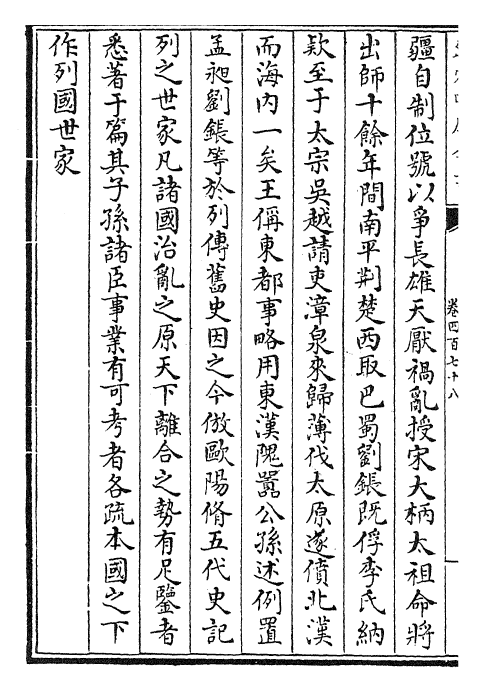 卷四百七十八
疆自制位號以爭長雄天厭禍亂授宋大柄太祖命將
出師十餘年間南平荆楚西取巴蜀劉鋹既俘李氏納
欵至于太宗吳越請吏漳泉來歸薄伐太原遂僨北漢
而海内一矣王偁東都事略用東漢隗囂公孫述例置
孟昶劉鋹等於列傳舊史因之今倣歐陽脩五代史記
列之世家凡諸國治亂之原天下離合之勢有足鑒者
悉著于篇其子孫諸臣事業有可考者各疏本國之下
作列國世家